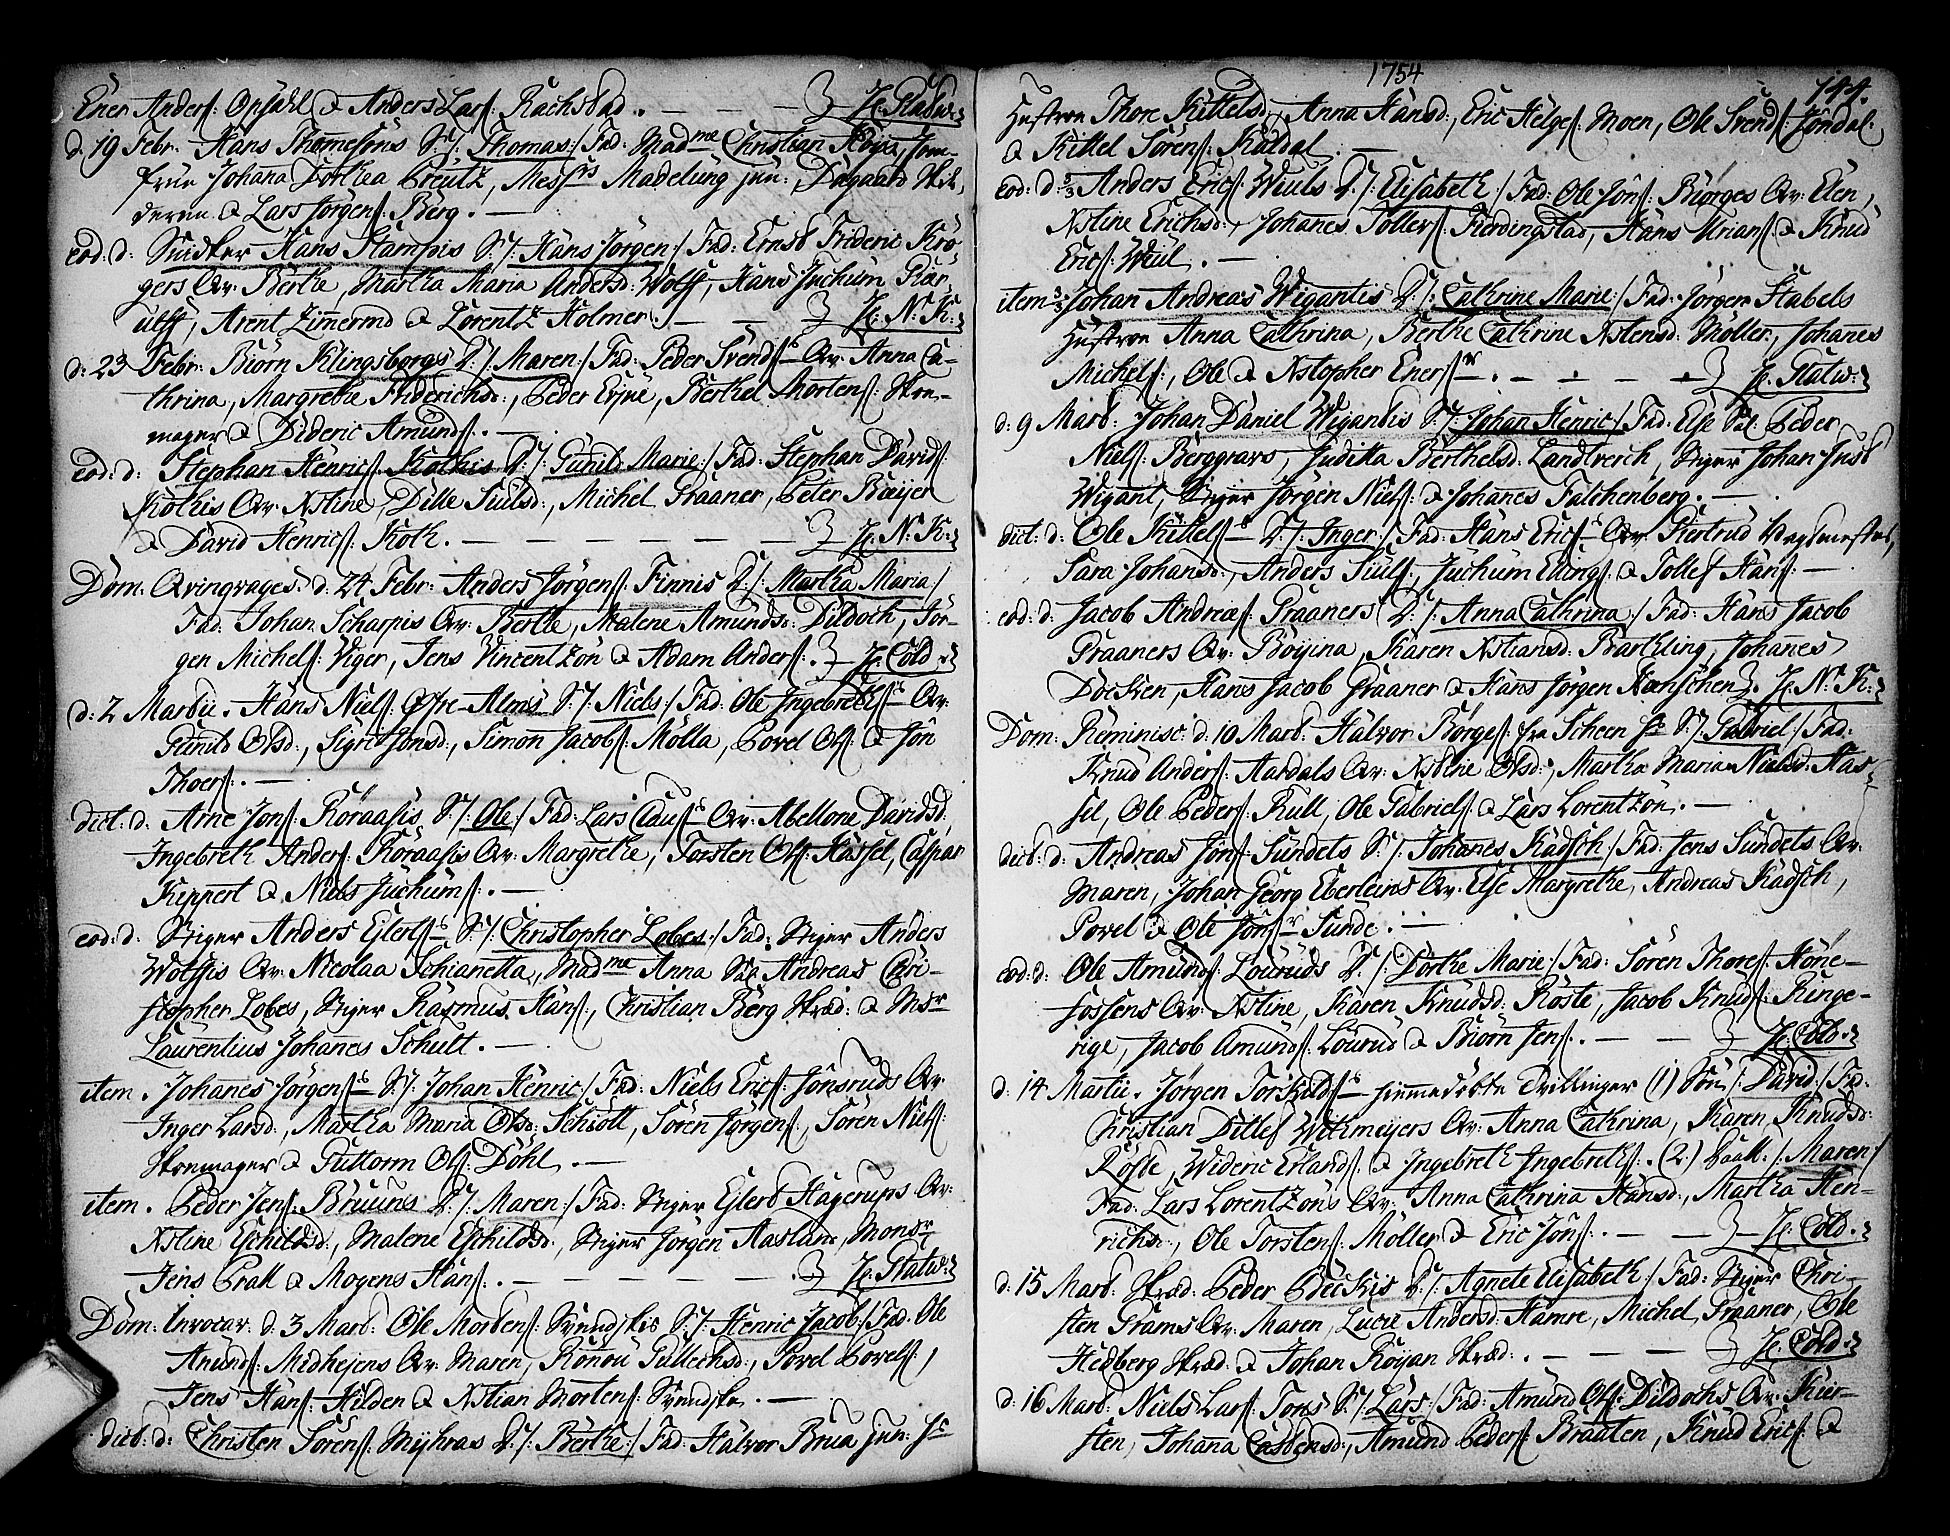 Ener Anders: Opsahl & Anders Lars: Rachstad. — — — } H: Statw:
d: 19 Febr: Hans Thomesøns S:/: Thomas:/ Fad: Madme Christian Høyer, Jom-
frue Johana Dorthea Creutz, Messrs Madelung jun:, Dagaard Skil-
deren & Lars Jørgens: Berg. —
eod: d: Snidker Hans Stampis S:/: Hans Jørgen:/ Fad: Ernst Frideric Krø-
gers Qv: Berthe, Martha Maria Andersd: Wolff, Hans Juchum
ulff, Arent Zimermd & Lorentz Holmer. — — } H: N: K:
d: 23 Febr: Biørn Klingsborgs D:/: Maren:/ Fad: Peder Svends: Qv: Anna Ca-
thrina, Margrethe Friderichsd:, Peder Erjne, Berthel Mortens: Skoe-
mager & Dideric Amunds:. —
eod: d: Stephan Henrics: Kothis D:/: Gunild Marie:/ Fad: Stephan Davids:
Kothis Qv: Xstine, Dille Siulsd:, Michel Graaner, Peter Bøijer
& David Henrics: Koth. — — — — — } H: N: K:
Dom: Qvinqvages: d: 24 Febr: Anders Jørgens: Finnis D:/: Martha Maria/
Fad: Johan Scharpis Qv: Berthe, Malene Amunds: Dildoch, Jør-
gen Michels: Viger, Jens Vincentzøn & Adam Anders:. } H: Cold.
d: 2 Martii. Hans Niels: Øfre-Almis S:/: Niels:/ Fad: Ole Ingebrethss: Qv:
Gunild Olsd:, Sigri Jonsd:, Simon Jacobs: Mølla, Povel Ols: & Jon
Thoers:. —
dict: d: Arne Jons: Røraasis S:/: Ole:/ Fad: Lars Clauss: Qv: Abellone Davidsd:,
Ingebreth Anders: Røraasis Qv: Margrethe, Torsten Ols: Hassel, Caspar
Keppert & Niels Juchums:. —
eod: d: Stiger Anders Ejlerts: S:/: Christopher Lobes:/ Fad: Stiger Anders
Wolffis Qv: Nicolaa Schianetta, Madme Anna Sal: Andreas Chri-
stopher Lobes, Stiger Rasmus Hans:, Christian Berg Skræd: & Msr
Laurentius Johanes Schult. —
item. Johanes Jørgens: S:/: Johan Henric:/ Fad: Niels Erics: Jonsruds Qv:
Inger Larsd:, Martha Maria Olsd: Schiøtt, Søren Jørgens:, Søren Niels:
Skoemager & Guttorm Ols: Døhl. —
item. Peder Jens: Bruuns D:/: Maren:/ Fad: Stiger Ejlert Hagerups Qv:
Xstine Eschildsd:, Malene Eschildsd:, Stiger Jørgen Aasland, Monsr
Jens Prall & Mogens Hans:. — — — — — } H: Statw:
Dom: Invocav: d: 3 Mart: Ole Mortens: Svendskis S:/: Henric Jacob:/ Fad: Ole
Amunds: Midhejens Qv: Maren, Rønou Gullechsd:, Povel Povels:,
Jens Hans: Hilden & Xstian Mortens: Svendske. —
dict: d: Christen Sørens: Myhras D:/: Berthe:/ Fad: Halvor Brua jun:
1754
144.
Hustroe Thore Kittelsd:, Anna Hansd:, Eric Helges: Moen, Ole Svends: Jondal,
& Kittel Sørens: Kaldal. —
eod: d: 3/3 Anders Erics: Wiuls D:/: Elisabeth:/ Fad: Ole Jons: Biørges Qv: Elen,
Xstine Erichsd:, Johanes Tollers: Kierdingstad, Hans Urians: & Knud
Erics: Wiul. —
item 3/3 Johan Andreas Wigantis D:/: Cathrine Marie:/ Fad: Jørgen Stabels
Hustroe Anna Cathrina, Berthe Cathrine Xstensd: Møller, Johanes
Michels:, Ole & Xstopher Eners:. — — — — } H: Statw:
d: 9 Mart: Johan Daniel Wigantis S:/: Johan Henric:/ Fad: Else Sal: Peder
Niels: Berggravs, Juditha Berthelsd: Landtverch, Stiger Johan Just
Wigant, Stiger Jørgen Niels: & Johanes Falchenberg. —
dict: d: Ole Kittels: D:/: Inger:/ Fad: Hans Erics: Qv: Kiertrud
Sara Johansd:, Anders Siuls:, Juchum Ellings: & Tollef Hans: —
eod: d: Jacob Andreæs: Graaners D:/: Anna Cathrina:/ Fad: Hans Jacob
Graaners Qv: Bøyina, Karen Xstiansd: Barthling, Johanes
Docken, Hans Jacob Graaner & Hans Jørgen Hænschen } H: N: K:
Dom: Reminisc: d: 10 Mart: Halvor Børges: fra Scheen S:/: Gabriel:/ Fad:
Knud Anders: Aardals Qv: Xstine Olsd:, Martha Maria Nielsd: Has-
sel, Ole Peders: Kull, Ole Gabriels: & Lars Lorentzøn. —
dict: d: Andreas Jons: Sundets S:/: Johanes Kadsch:/ Fad: Jens Sundets Qv:
Maren, Johan Georg Eberleins Qv: Else Margrethe, Andreas Kadsch,
Povel & Ole Jons: Sunde. —
eod: d: Ole Amunds: Louruds D:/: Dorthe Marie:/ Fad: Søren Thores: Høne-
fossens Qv: Xstine, Karen Knudsd: Røste, Jacob Knuds: Ringe-
rige, Jacob Amunds: Lourud & Biørn Jens:. — — } H: Cold.
d: 14 Martii. Jørgen Torkilds: hiemmedøbte Tvillinger (1) Søn /: David:/ Fad:
Christian Ditlef Withmeyers Qv: Anna Cathrina, Karen Knudsd:
Røste, Wideric Erlands: & Ingebreth Ingebreths:. (2.) Daatt: /: Maren:/
Fad: Lars Lorentzøns Qv: Anna Cathrina Hansd:, Martha Hen-
richsd:, Ole Torstens: Møller & Eric Jons:. — — } H: Cold.
d: 15 Mart: Skræd: Peder Beckis D:/: Agnete Elisabeth:/ Fad: Stiger Chri-
sten Grams Qv: Maren, Lucie Andersd: Hamre, Michel Graaner, Ole
Hedberg Skræd: & Johan Røyan Skræd:. — — — } H: Cold.
d: 16 Mart: Niels Lars: Tons S:/: Lars:/ Fad: Amund Ols: Dildochs Qv: Kier-
sten, Johana Castensd:, Amund Peders: Braaten, Knud Erics: &